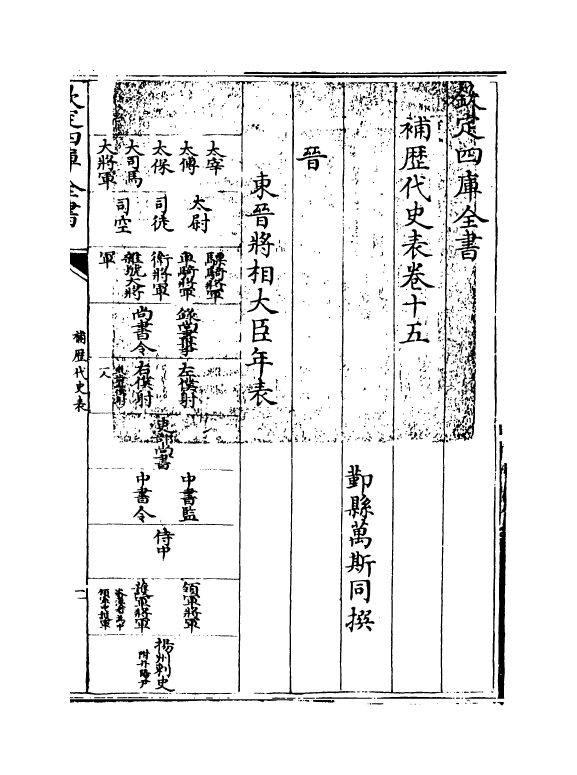 欽定四庫全書
補歷代史表卷十五
鄞縣萬斯同撰
晉
東晉將相大臣年表
太宰
太傅
太保
大司馬
大將軍
太尉
司徒
司空
驃騎將軍
車騎將軍
衛將軍
雜號大將
軍
錄尚書事
尚書令
左僕射
右僕射
吏部尚書
中書監
中書令
侍中
領軍將軍
護軍將軍
揚州刺史
附丹陽尹
欽定四庫全書
補歷代史表